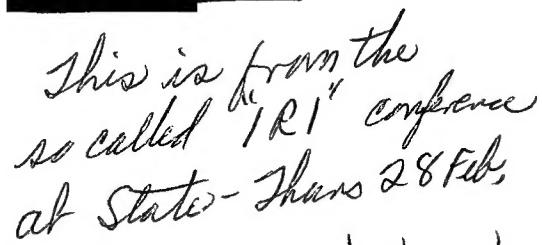 This is from the
so called "IRI" conference
at State - Thurs 28 Feb,